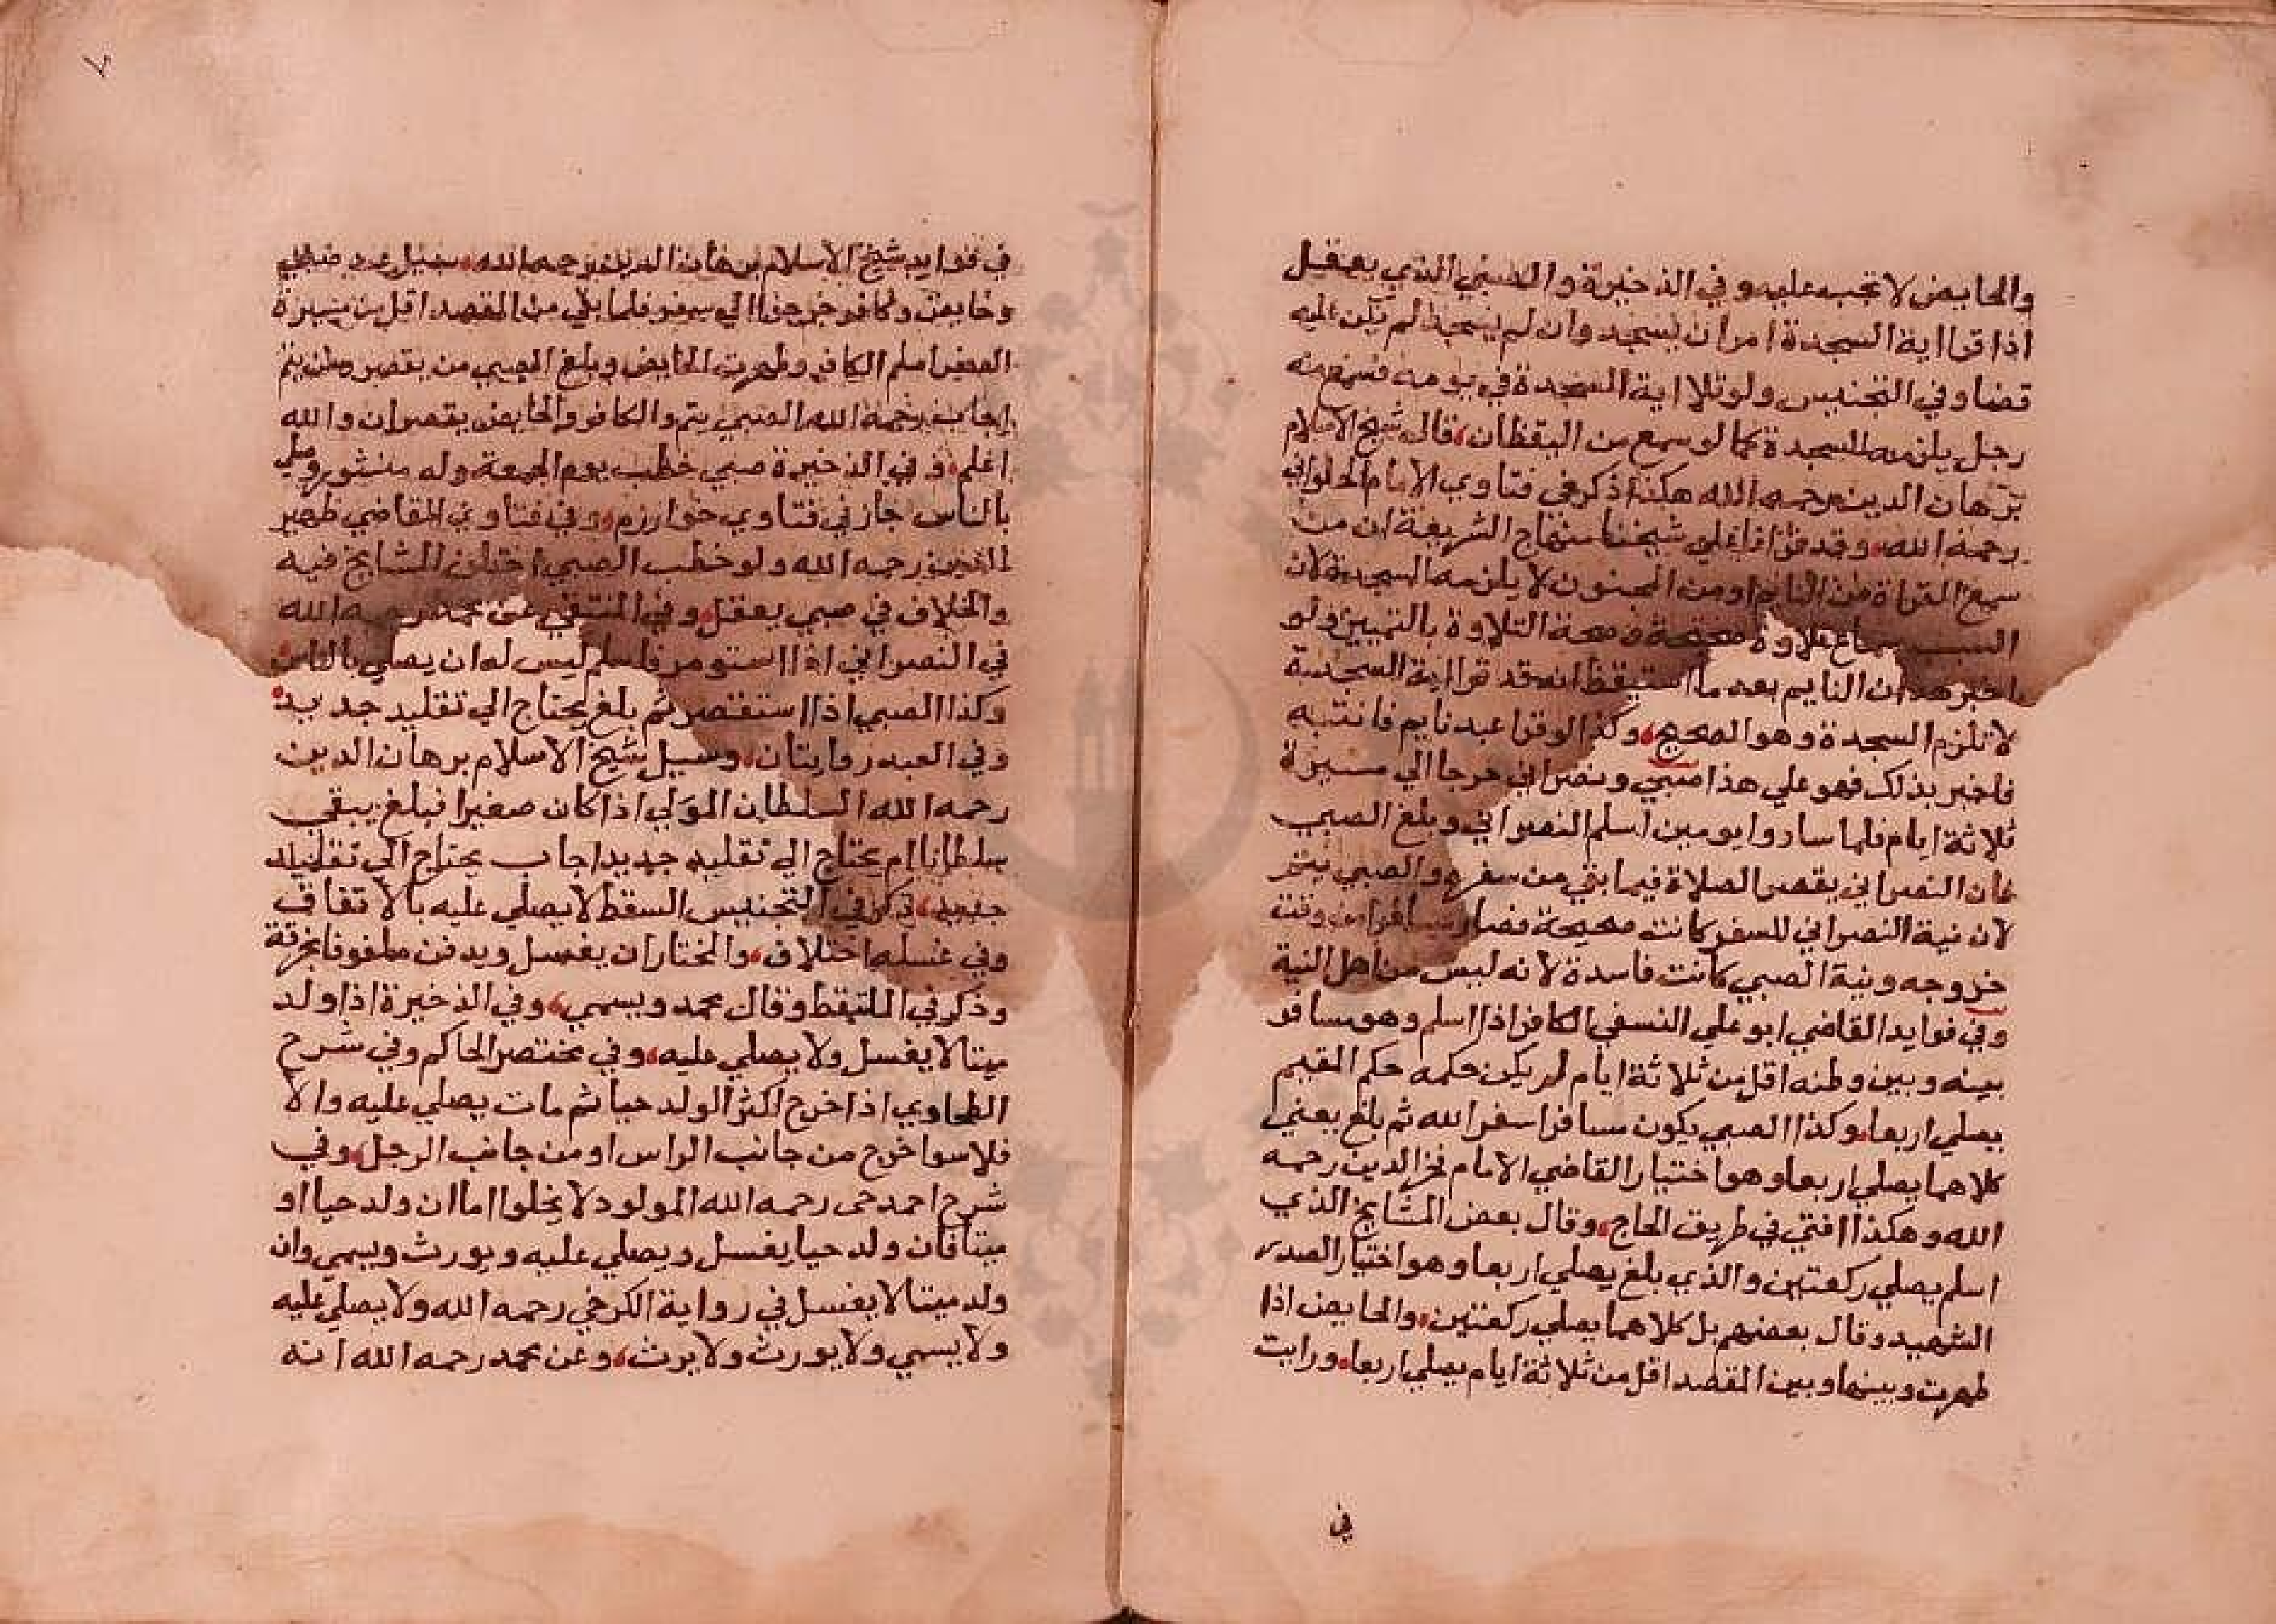 والحايض لا تجب عليه وفي الذخيرة والصبي الذي يعقل
اذا قرا اية السجدة امر ان يسجد وان لم يسجد لم يكن عليه
قضا وفي التجنيس ولو تلا اية السجدة في نومه فسمع منه
رجل يلزمه السجدة كما لو سمع من اليقظان قال شيخ الاسلام
برهان الدين رحمه الله هكذا ذكر في فتاوي الامام الحلواني
رحمه الله وقد قرانا علي شيخنا منهاج الشريعة ان من
سمع القراة من النايم او من المجنون لا يلزمه السجدة لان
السبب سماع تلاوة صحيحة وصحة التلاوة بالتمييز ولو
اخبر هذا ان النايم بعد ما استيقظ انه قد قرا اية السجدة
لا تلزم السجدة وهو الصحيح وكذا لو قرا عبد نايم فانتبه
فاخبر بذلك فهو علي هذا صبي ونصراني خرجا الي مسيرة
ثلاثة ايام فلما سارا يومين اسلم النصراني وبلغ الصبي
فان النصراني يقصر الصلاة فيما بقي من سفره والصبي يتم
لان نية النصراني للسفر كانت صحيحة فصار مسافرا من وقت
خروجه ونية الصبي كانت فاسدة لانه ليس من اهل النية
وفي فوايد القاضي ابو علي النسفي الكافر اذا اسلم وهو مسافر
بينه وبين وطنه اقل من ثلاثة ايام لم يكن حكمه حكم المقيم
يصلي اربعا وكذا الصبي يكون مسافرا سفرا لله ثم بلغ يعني
كلاهما يصلي اربعا وهو اختيار القاضي الامام فخر الدين رحمه
الله وهكذا افتي في طريق الحاج وقال بعض المشايخ الذي
اسلم يصلي ركعتين والذي بلغ يصلي اربعا وهو اختيار الصدر
الشهيد وقال بعضهم بل كلاهما يصلي ركعتين والحايض اذا
طهرت وبينها وبين المقصد اقل من ثلاثة ايام يصلي اربعا ورايت
في
في فوايد شيخ الاسلام برهان الدين رحمه الله سيل عن صبي
وحايض وكافر خرجوا الي سفر فلما بقي من المقصد اقل من مسيرة
السفر اسلم الكافر وطهرت الحايض وبلغ الصبي من يقصر ومن يتم
اجاب رحمه الله الصبي يتم والكافر والحايض يقصران والله
اعلم وفي الذخيرة صبي خطب يوم الجمعة وله منشور وصلي
بالناس جاز في فتاوي خوارزم وفي فتاوي القاضي ظهير
الدين رحمه الله ولو خطب الصبي اختلف المشايخ فيه
والخلاف في صبي يعقل وفي المنتقي عن محمد رحمه الله
في النصراني اذا استومر فاسلم ليس له ان يصلي بالناس
وكذا الصبي اذا استقصر ثم بلغ يحتاج الي تقليد جديد
وفي العبد روايتان وسيل شيخ الاسلام برهان الدين
رحمه الله السلطان المولي اذا كان صغيرا فبلغ يبقي
سلطانا ام يحتاج الي تقليد جديد اجاب يحتاج الي تقليد
جديد ذكر في التجنيس السقط لا يصلي عليه بالاتفاق
وفي غسله اختلاف والمختار ان يغسل ويدفن ملفوفا بخرقة
وذكر في الملتقط وقال محمد ويسمي وفي الذخيرة اذا ولد
ميتا لا يغسل ولا يصلي عليه وفي مختصر الحاكم وفي شرح
الطحاوي اذا خرج اكثر الولد حيا ثم مات يصلي عليه والا
فلا سوا خرج من جانب الراس او من جانب الرجل وفي
شرح احمد حى رحمه الله المولود لا يخلوا اما ان ولد حيا او
ميتا فان ولد حيا يغسل ويصلي عليه ويورث ويسمي وان
ولد ميتا لا يغسل في رواية الكرخي رحمه الله ولا يصلي عليه
ولا يسمي ولا يورث ولا يرث وعن محمد رحمه الله انه